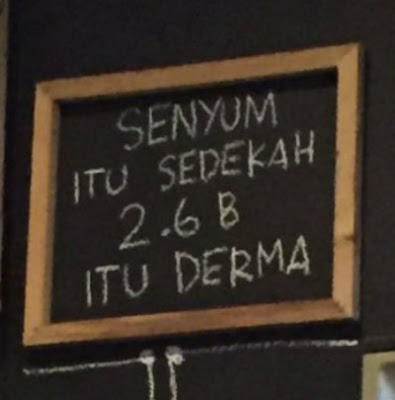 SENYUM
ITU SEDEKAH
2.6 B
ITU DERMA